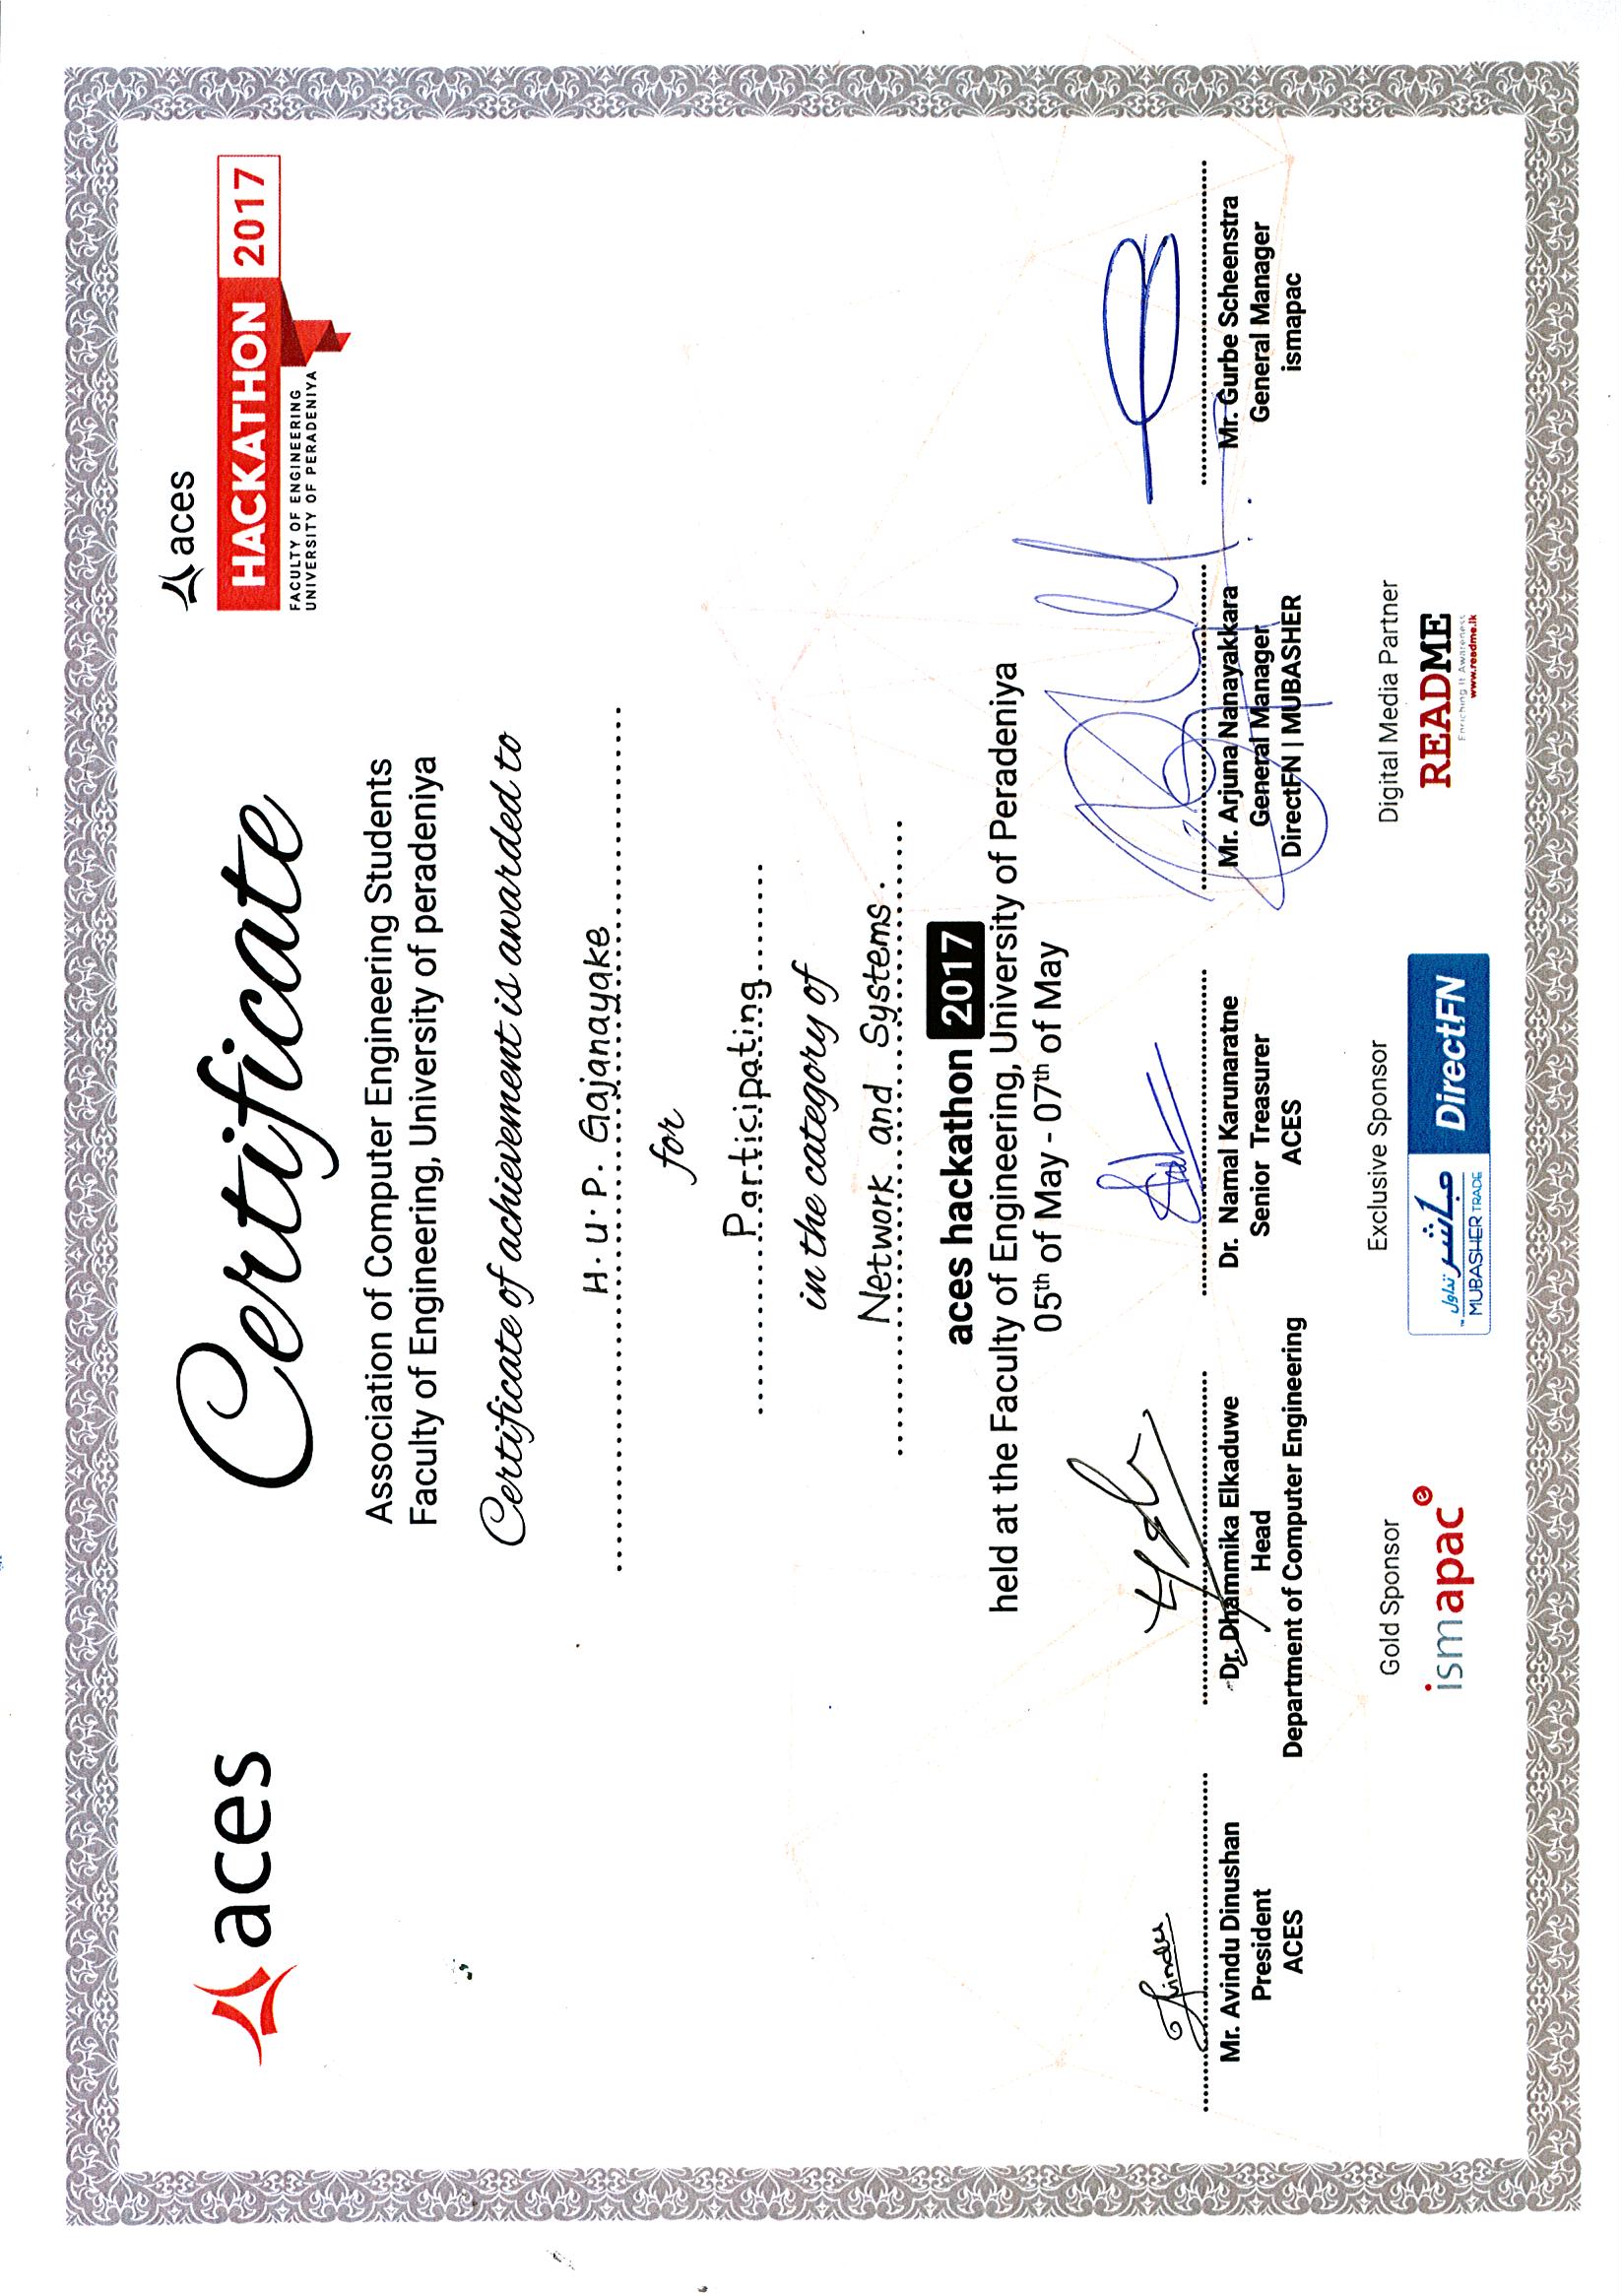 aces
Certificate
aces
HACKATHON 2017
FACULTY OF ENGINEERING
UNIVERSITY OF PERADENIYA
Association of Computer Engineering Students
Faculty of Engineering, University of peradeniya
Certificate of achievement is awarded to
H. U. P. Gajanayake
for
Participating
in the category of
Network and Systems.
aces hackathon 2017
held at the Faculty of Engineering, University of Peradeniya
05th of May - 07th of May
Avindu
Mr. Avindu Dinushan
President
ACES
Dr. Dhammika Elkaduwe
Head
Department of Computer Engineering
Dr. Namal Karunaratne
Senior Treasurer
ACES
Mr. Arjuna Nanayakkara
General Manager
DirectFN | MUBASHER
Mr. Gurbe Scheenstra
General Manager
ismapac
Gold Sponsor
ismapac e
Exclusive Sponsor
مباشر تداول
MUBASHER TRADE
DirectFN
Digital Media Partner
README
Enriching It Awareness
www.readme.lk